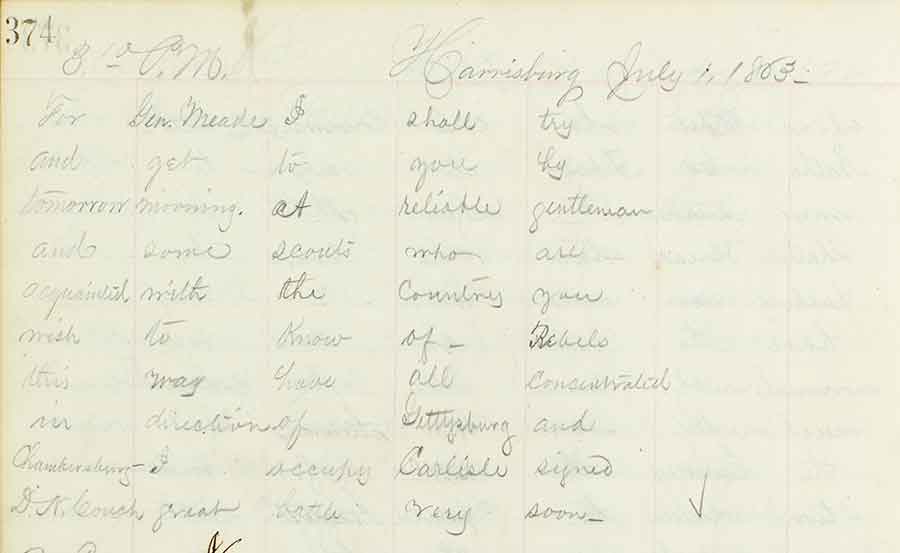 374
3 10 P.M. Harrisburg July 1, 1863
For Gen. Meade I shall try
and get to you by
tomorrow morning. at reliable gentleman
and some scouts who are
acquainted with the Country you
wish to know of Rebels
this way have all concentrated
in direction of Gettysburg and
Chambersburg I occupy Carlisle signed
D. N. Couch great battle very soon